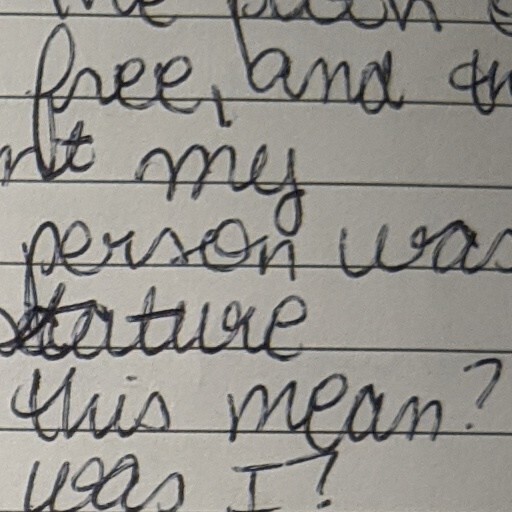 free, and
my
person was
stature
this mean?
was I?